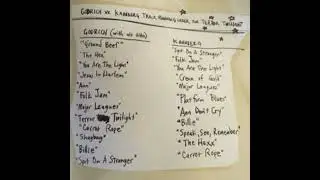 GODRICH VS. KANNBERG TRACK RUNNING ORDER FOR TERROR TWILIGHT
GODRICH (with alt titles)
"Ground Beef"
"The Hex"
"You Are The Light"
"Jesus in Harlem"
"Ann"
"Folk Jam"
"Major Leagues"
"Terror Twilight"
"Carrot Rope"
"Shagbag"
"Billie"
"Spit On A Stranger"
KANNBERG
"Spit On A Stranger"
"Folk Jam"
"You Are The Light"
"Cream of Gold"
"Major Leagues"
"Platform Blues"
"Ann Don't Cry"
"Billie"
"Speak, See, Remember"
"The Hexx"
"Carrot Rope"